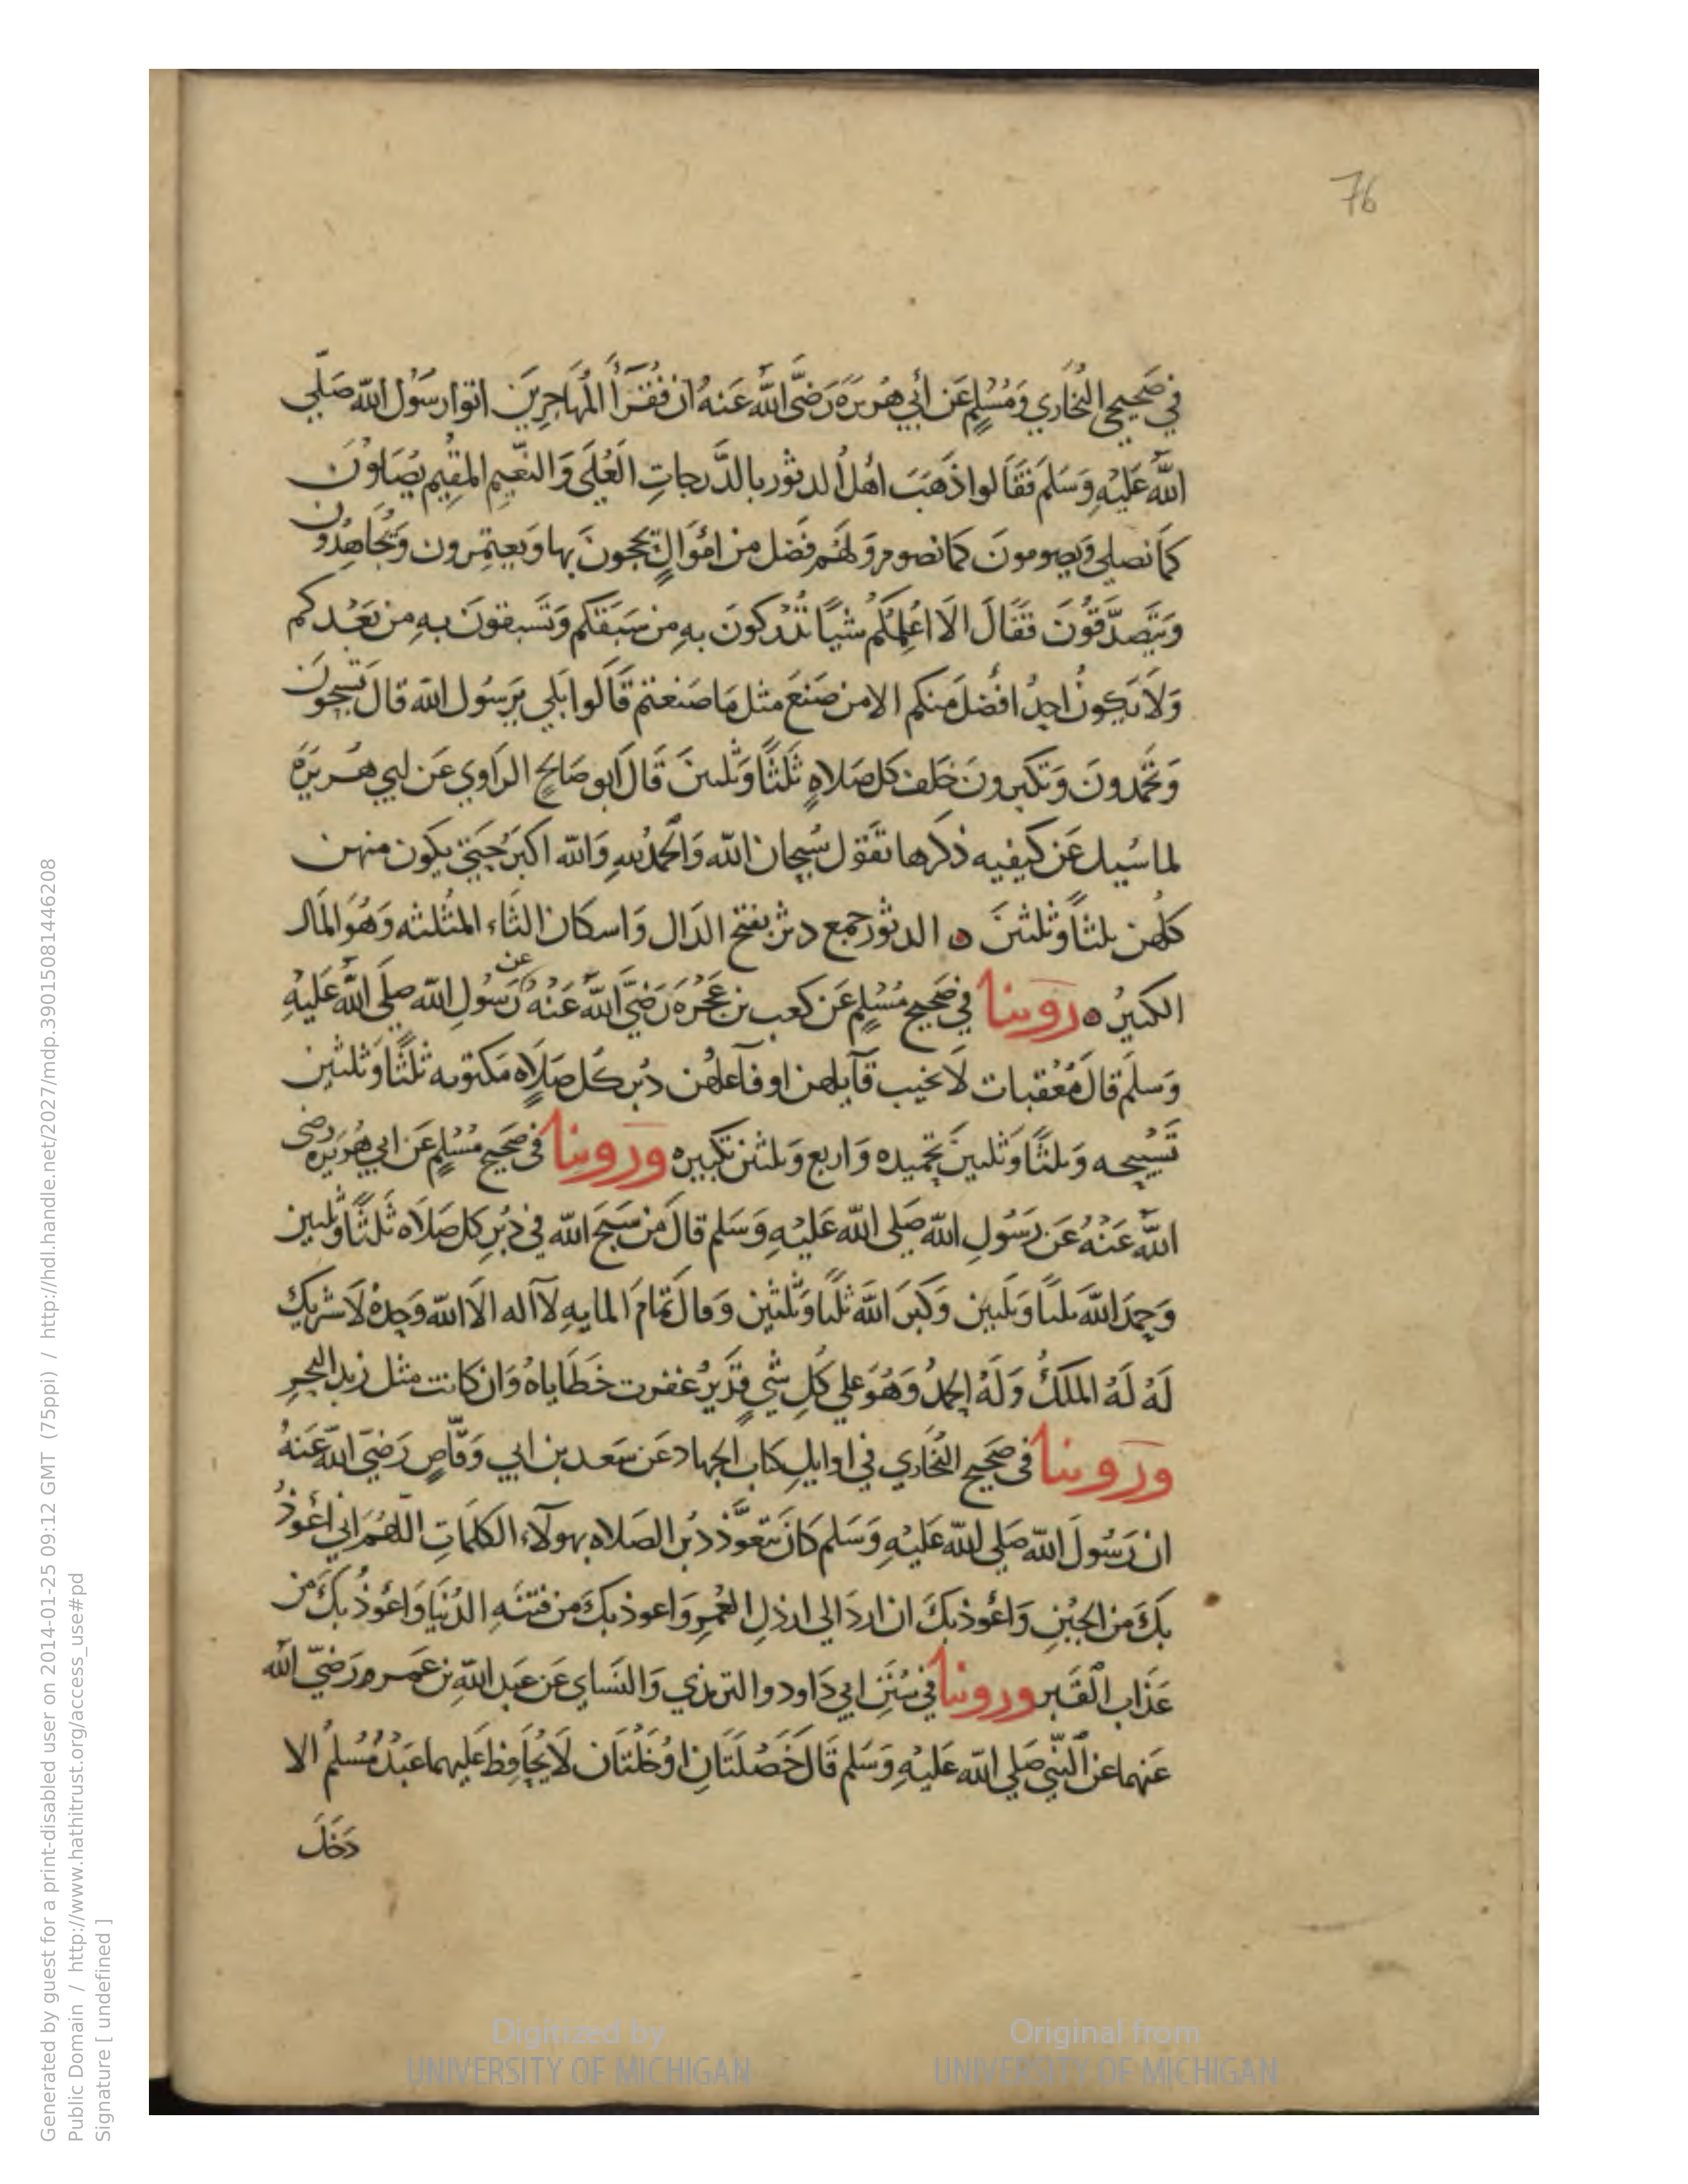 76
في صَحيحي البُخاري وَمُسْلِمٍ عَن أبي هُرَيرَةَ رَضيَّ اللَّه عَنهُ ان فُقَرَأُ المُهَاجِرِينَ اتوا رسَوُل اللّه صَلّي
اللَّه عَليْهِ وَسَلمَ فقَاَلوا ذَهَبَ اهْلُ الدثور بالدَّرجاتِ العُلَى وَالنعَّيمِ المقِيم يُصَلوُنَ
كمَا نصلي وَيصومونَ كما نصوم وَلهُم فضَل من امْوَالٍ يَحجونَ بها وَيعتِمرون وَيُجَاهِدُون
وَيتَصدَّقوُنَ فقَاَلَ الَا اعُلِمُكُم شيًا تدْركونَ بهِ من سَبَقَكم وَتسَبقونَ بهِ من بَعْدكم
وَلَا يَكونُ احدُ افْضلَ مَنكم الا من صَنعَ مثل مَا صَنعتم قَالوا بَلي يَرسَوُل اللّه قال تَسبحوُنَ
وَتحمَدونَ وَتكبرونَ خلف كل صَلاةٍ ثَلثًا وَثلثينَ قَال ابو صَالحٍ الراوي عَن ابي هُريرَةَ
لما سُيل عَن كيفيه ذكرها تقَوَل سُبحان اللّه وَالحَمدُ للهِ وَاللّه اكبرَ حَتى يكون منهن
كلُهن ثلثًا وثلثينَ ٥ الدثور جمع دثر بفتح الدَال وَاسكان الثاء المثلثه وَهُوَ المال
الكثيرُ ٥ رَوينا في صَحيحِ مُسْلِمٍ عَن كعب بن عُجْرَهَ رَضيَّ اللَّه عَنْهُ عن رَسُولِ اللّه صلى اللَّه عَليْهِ
وَسلمَ قالَ مُعقبات لَا يخيب قآيلهن او فآعلهُن دُبر كل صَلاةٍ مَكتوبه ثلثًا وَثلثين
تَسْبيحه وَثلثًا وَثلثينَ تحميده وَاربع وَثلثين تكبيره وَرَوينا في صَحيح مُسْلمٍ عَن ابي هُرَيره رضي
اللَّه عَنْهُ عَن رَسوُلِ اللّه صَلى اللّه عَليْهِ وَسَلم قالَ من سَبحَ اللّه في دُبُرِ كل صَلَاه ثَلثًا وَثلثين
وَحمِدَ اللَّه ثلثًا وَثلثين وَكَبرَ اللَّه ثلثًا وَثلثين وَقال تَمَامَ المايهِ لآاله الَا اللّه وَحدهُ لَا شريك
لَهُ لَهُ الملكُ وَلَهُ الحمدُ وَهُوَ علي كُلِ شيٍ قدَيرُ غفرت خَطَاياهُ وَان كانت مثل زبد البحرِ
وَرَوينا في صَحيح البُخَاري في اوايلِ كتاب الجهاد عَن سَعد بن ابي وَقّاصٍ رَضيَ اللّه عَنهُ
ان رَسُولَ اللّه صَلي للّه عَليْهِ وَسَلم كانَ يتعوَّذ دُبر الصَلاه بهولآء الكلمَاتِ اللّهُمَ اني اعُوذُ
بكَ من الجُبْنِ وَاعُوذ بكَ ان اردَ الي ارذلِ العُمرِ وَاعوذ بكَ من فتنَهِ الدُنيَا وَاعُوذُ بكَ من
عَذاب القَبر ورَوينا في سُنَنِ ابي دَاود والترمذي وَالنسَاي عَن عَبد اللّهِ بن عَمرو رَضيَّ اللَّه
عَنهما عن النَّبيّ صَلي اللّه عَليْهِ وَسَلم قَالَ خَصْلَتَانِ اوْ خَلتَان لَا يُحَافِظ عَليهما عَبدُ مُسْلمُ الا
دَخَلَ
Generated by guest for a print-disabled user on 2014-01-25 09:12 GMT (75ppi) / http://hdl.handle.net/2027/mdp.39015081446208
Public Domain / http://www.hathitrust.org/access_use#pd
Signature [ undefined ]
Digitized by
UNIVERSITY OF MICHIGAN
Original from
UNIVERSITY OF MICHIGAN